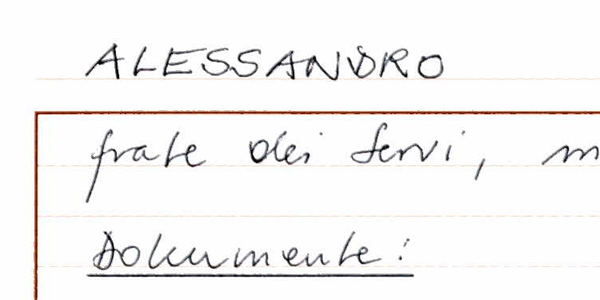 ALESSANDRO
frate dei Servi, m
Dokumente: